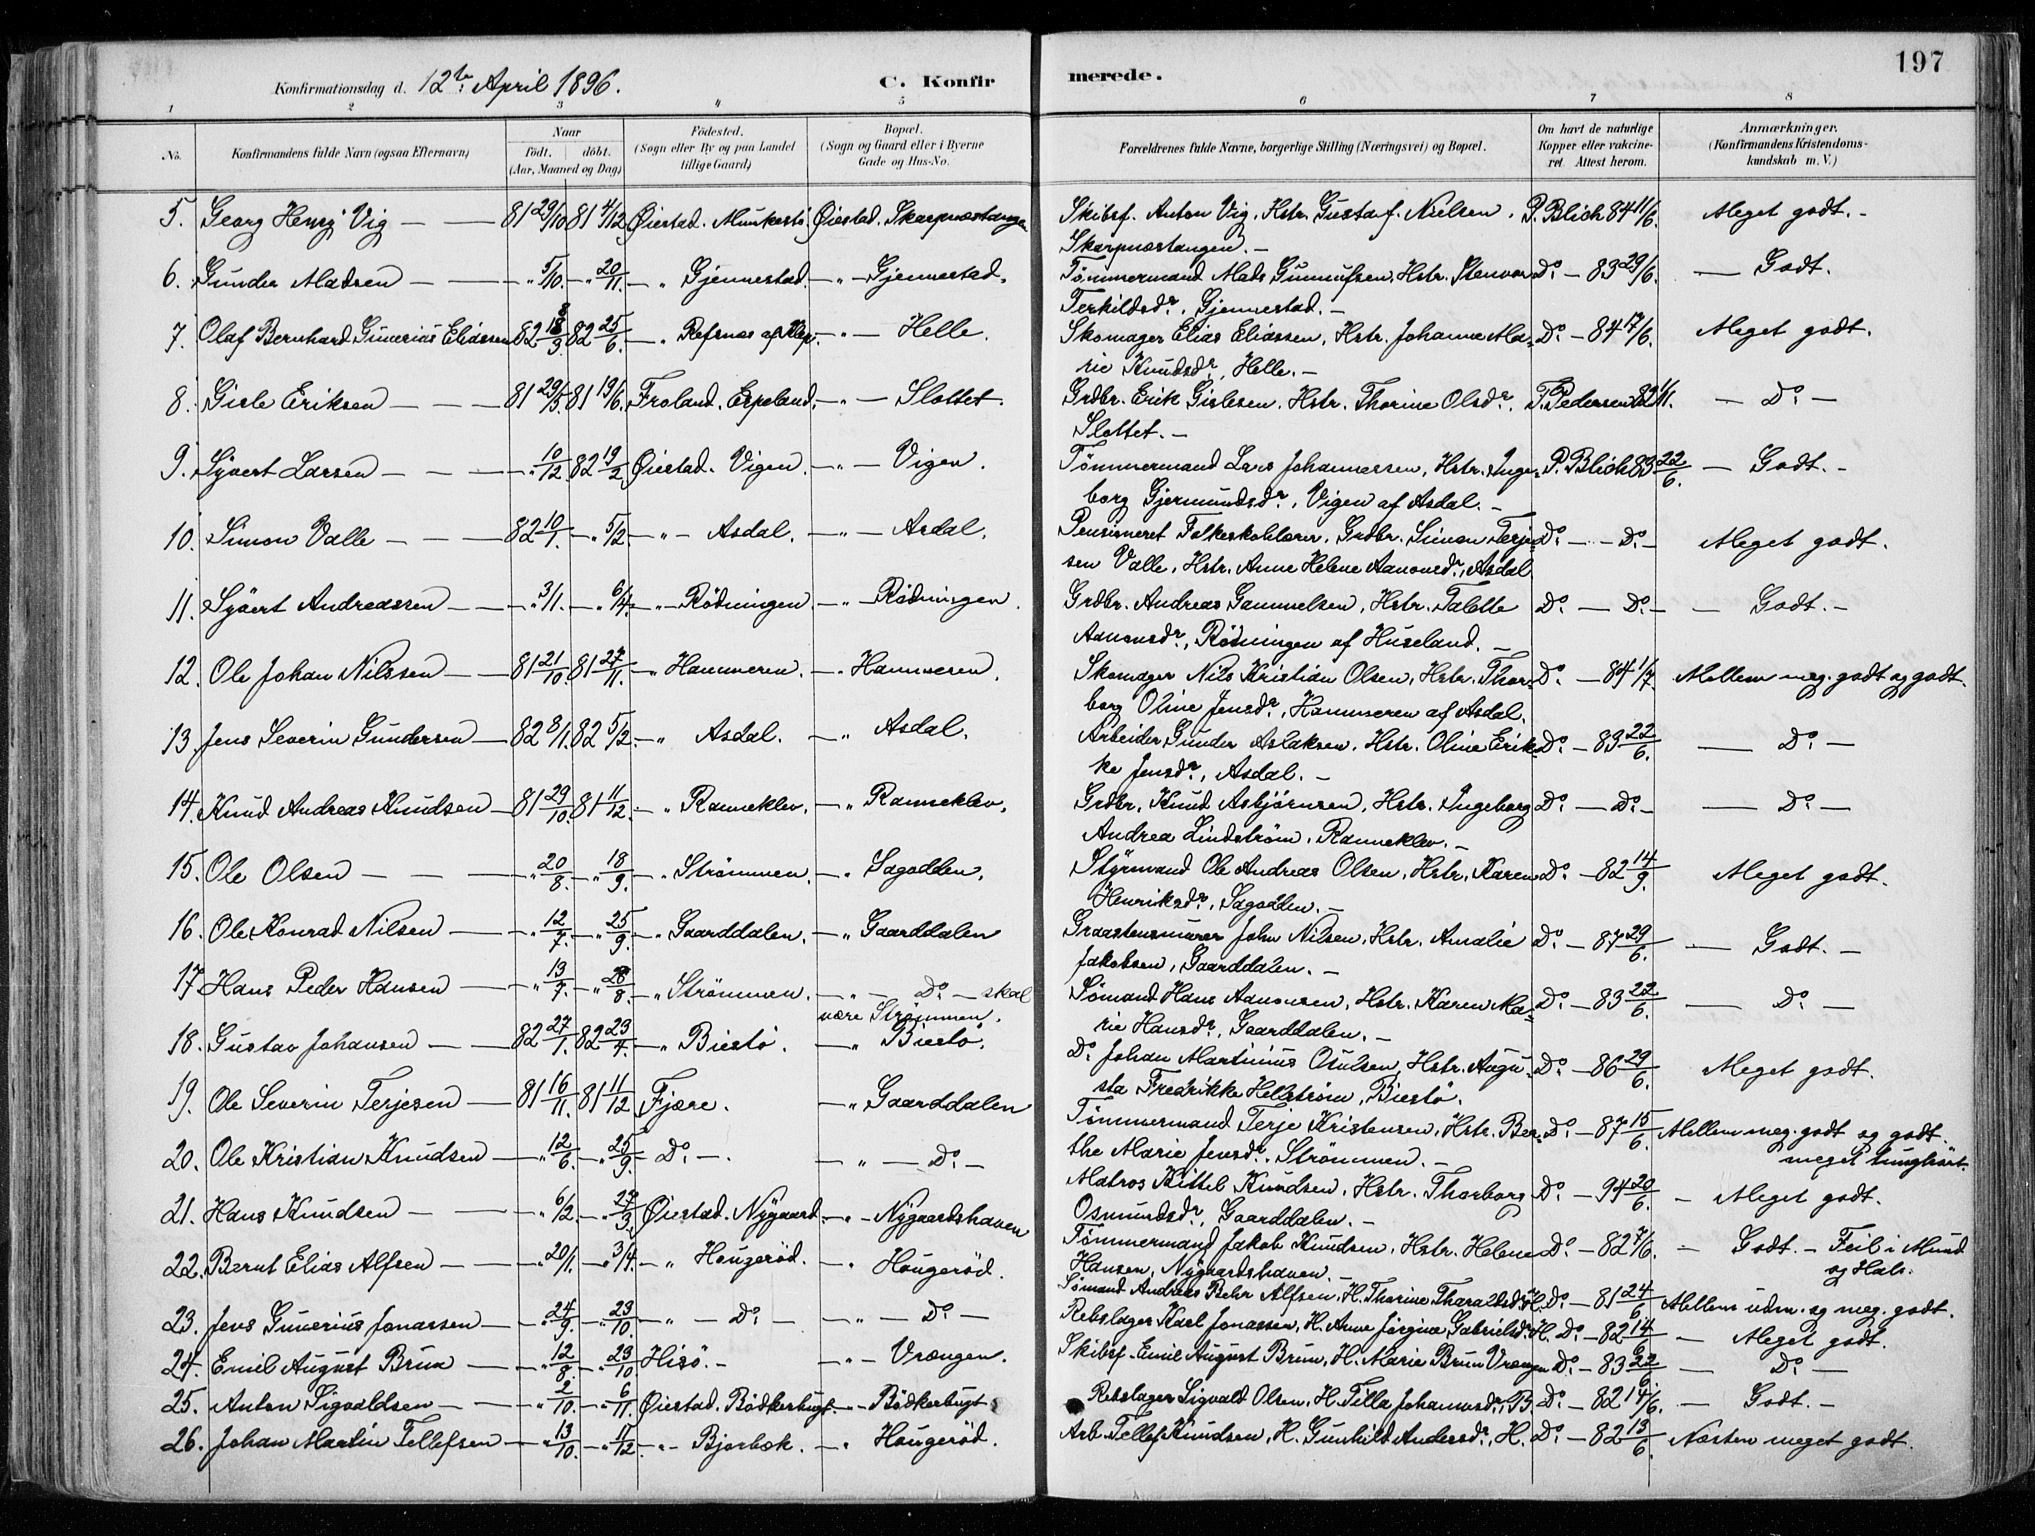 197
Konfirmationsdag d. 12te April 1896. C. Konfir merede.
1 2 3 4 5 6 7 8
No. Konfirmandens fulde Navn (ogsaa Efternavn) Naar født, døbt. (Aar, Maaned og Dag) Fødested. (Sogn eller By og paa Landet tillige Gaard) Bopæl. (Sogn og Gaard eller i Byerne Gade og Hus-No. Forældrenes fulde Navne, borgerlige Stilling (Næringsvei) og Bopæl. Om havt de naturlige Kopper eller vakcineret. Attest herom. Anmærkninger. (Konfirmandens Kristendomskundskab m. V.)
5. Georg Henry Vig — 81 29/10 81 4/12 Øiestad. Munkestø. Øiestad. Skarpnæstangen Skibsf. Anton Vig, Hstr. Gustaf. Nielsen, P. Blich 84 11/6. Meget godt. -
Skarpnæstangen. -
6. Gunder Madsen — — " 5/10 - " 20/11. - " Gjennestad. - " - Gjennestad. Tømmermand Mads Gunnufsen, Hstr. Stenvor Do. - 83 29/6. — Godt.
Terkildsdr., Gjennestad. -
7. Olaf Bernhard Gunerius Eliassen 82 18/3. 82 25/6. - " Refsnæs af Klep. - " - Helle. Skomager Elias Eliassen, Hstr. Johanne Ma- Do. - 84 17/6. Meget godt.
rie Knudsdr., Helle. -
8. Gisle Eriksen — — 81 29/3. 81 19/6. Froland. Espeland. - " - Slottet. Grdbr. Erik Gislesen. Hstr. Thorine Olsdr. T. Pedersen 82 1/11. — Do. —
Slottet. -
9. Syvert Larsen — — " 10/12. 82 19/2. Øiestad. Vigen. - " - Vigen. Tømmermand Lars Johannessen, Hstr. Inge- P. Blich 83 22/6. — Godt. -
borg Gjermundsdr., Vigen af Asdal. -
10. Simon Valle — — 82 10/1. - " 5/2 - " - Asdal. - " - Asdal. Pensioneret Folkeskolelærer, Grdbr. Simon Terje- Do. - - Do. - Meget godt.
sen Valle, Hstr. Anne Helene Aanonsdr., Asdal
11. Syvert Andreassen — — " 3/1. - " 6/4. - " - Rødningen. - " - Rødningen. Grdbr. Andreas Gammelsen, Hstr. Talette Do. — Do. - — Godt. -
Aanonsdr., Rødningen af Huseland. -
12. Ole Johan Nilssen — 81 21/10. 81 27/11. - " Hammeren. - " Hammeren. Skomager Nils Kristian Olsen, Hstr. Thor- Do. - 84 1/7. Mellem meg. godt og godt.
borg Oline Jensdr., Hammeren af Asdal.
13. Jens Severin Gundersen — 82 8/1. 82 5/2. - " Asdal. - " Asdal. Arbeider Gunder Aslaksen, Hstr. Oline Erik- Do. - 83 22/6. — Do. —
ke Jensdr., Asdal. -
14. Knud Andreas Knudsen — 81 29/10. 81 11/12. - " Ranneklev. - " Ranneklev. Grdbr. Knud Asbjørnsen, Hstr. Ingeborg Do. - Do. - — Do. —
Andrea Lindstrøm, Ranneklev. -
15. Ole Olsen — — " 20/8. - " 18/9. - " Strømmen. - " Sagodden. Styrmand Ole Andreas Olsen, Hstr. Karen Do. - 82 14/9. Meget godt.
Henriksdr., Sagodden. -
16. Ole Konrad Nilsen — " 12/7. - " 25/9. - " Gaarddalen. - " Gaarddalen Graastensmurer John Nilsen, Hstr. Amalie Do. - 87 29/6. — Godt. -
Jakobsen, Gaarddalen. -
17. Hans Peder Hansen — " 13/7. - " 28/8. - " Strømmen. - " - Do. - skal Sømand Hans Aanonsen, Hstr. Karen Ma- Do. - 83 22/6. — Do. —
være Strømmen. rie Hansdr., Gaarddalen. -
18. Gustav Johansen — 82 27/1. 82 23/4. - " Biestø. - " Biestø. Do. Johan Martinius Osulsen, Hstr. Augu- Do. - 86 29/6. Meget godt.
sta Fredrikke Hellstrøm, Biestø.
19. Ole Severin Terjesen — 81 16/11. 81 11/12 Fjære. - " Gaarddalen Tømmermand Terje Kristensen, Hstr. Ber- Do. - 87 15/6. Mellem meg. godt og godt.
the Marie Jensdr., Strømmen. - meget tunghørt.
20. Ole Kristian Knudsen — " 12/6. - " 25/9. Do. -. - " - Do. - Matros Kittel Knudsen, Hstr. Thorborg Do. - 94 20/6. - Meget godt.
Osmundsdr., Gaarddalen. -
21. Hans Knudsen — " 6/2. - " 27/3. Øiestad. Nygaard. - " - Nygaardshaven Tømmermand Jakob Knudsen, Hstr. Helene Do. - 82 7/6. - Godt. - Feil i Mund
Hansen, Nygaardshaven. - og Hals.
22. Bernt Elias Alfsen — " 20/1. - " 3/4. - " Hougerød. - " Hougerød. Sømand Andreas Behr Alfsen, H. Thorine Tharaldsdr. H. Do. - 81 24/6 Mellem udm. og meg. godt.
23. Jens Gunerius Jonassen — " 24/9. - " 23/10. - " - Do. - - " - Do. - Rebslager Karl Jonassen, H. Anne Jørgine Gabrielsdr. H. Do. - 82 14/6 - Meget godt.
24. Emil August Brun — " 12/8. - " 23/10. Hisø. - - " - Vrængen. Skibsf. Emil August Brun, H. Marie Brun Vrængen Do. - 83 22/6 — Do. —
25. Anton Sigvaldsen — " 2/10. - " 6/11. Øiestad. Bødkerbugt. - " - Bødkerbugt Rebslager Sigvald Olsen, H. Tilla Johannesdr., B. Do. - 82 14/6. — Godt. -
26. Johan Martin Tellefsen — " 13/10 - " 11/12. - " - Bjorbæk. - " Hougerød. Arb. Tellef Knudsen, H. Gunhild Andersdr., H. Do. - 82 13/6. Næsten meget godt.